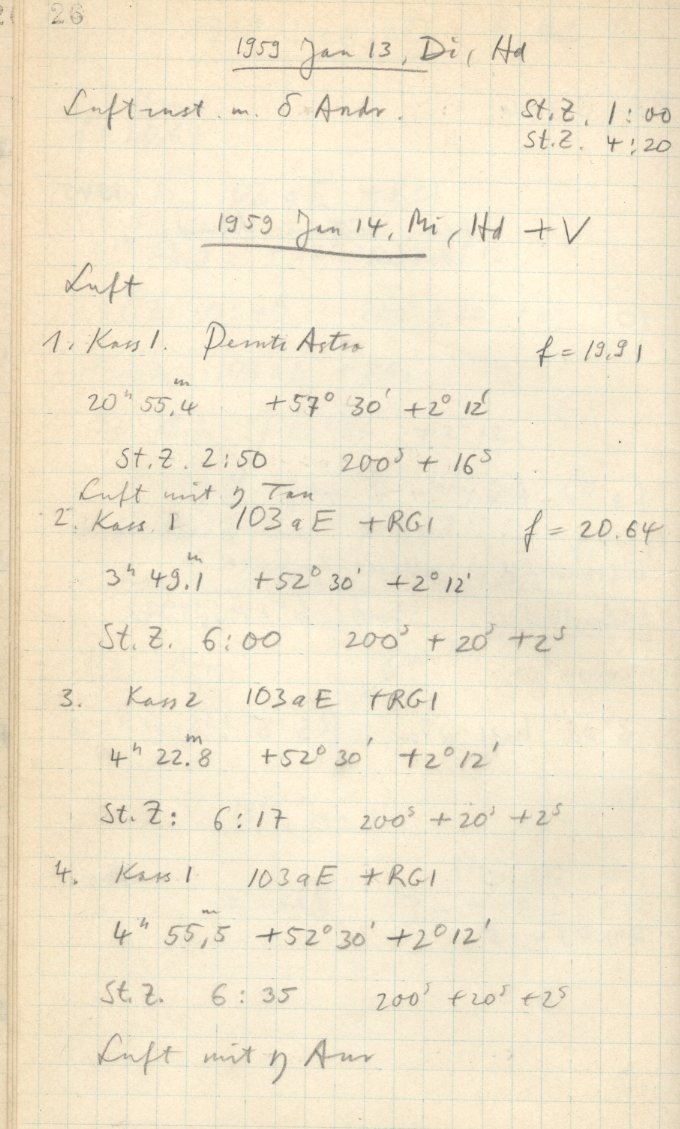 26
1959 Jan 13, Di, Hd
Luftunst. m. δ Andr. St.Z. 1:00
St.Z. 4:20
1959 Jan 14, Mi, Hd + V
Luft
1. Kass 1. Perutz Astro f = 19,91
20ʰ 55,4ᵐ +57° 30' +2° 12'
St.Z. 2:50 200ˢ + 16ˢ
Luft mit η Tau
2. Kass. 1 103aE + RG1 f = 20.64
3ʰ 49.1ᵐ +52° 30' +2° 12'
St.Z. 6:00 200ˢ + 20ˢ + 2ˢ
3. Kass 2 103aE + RG1
4ʰ 22.8ᵐ +52° 30' +2° 12'
St.Z: 6:17 200ˢ + 20ˢ + 2ˢ
4. Kass 1 103aE + RG1
4ʰ 55,5ᵐ +52° 30' +2° 12'
St.Z. 6:35 200ˢ + 20ˢ + 2ˢ
Luft mit η Aur